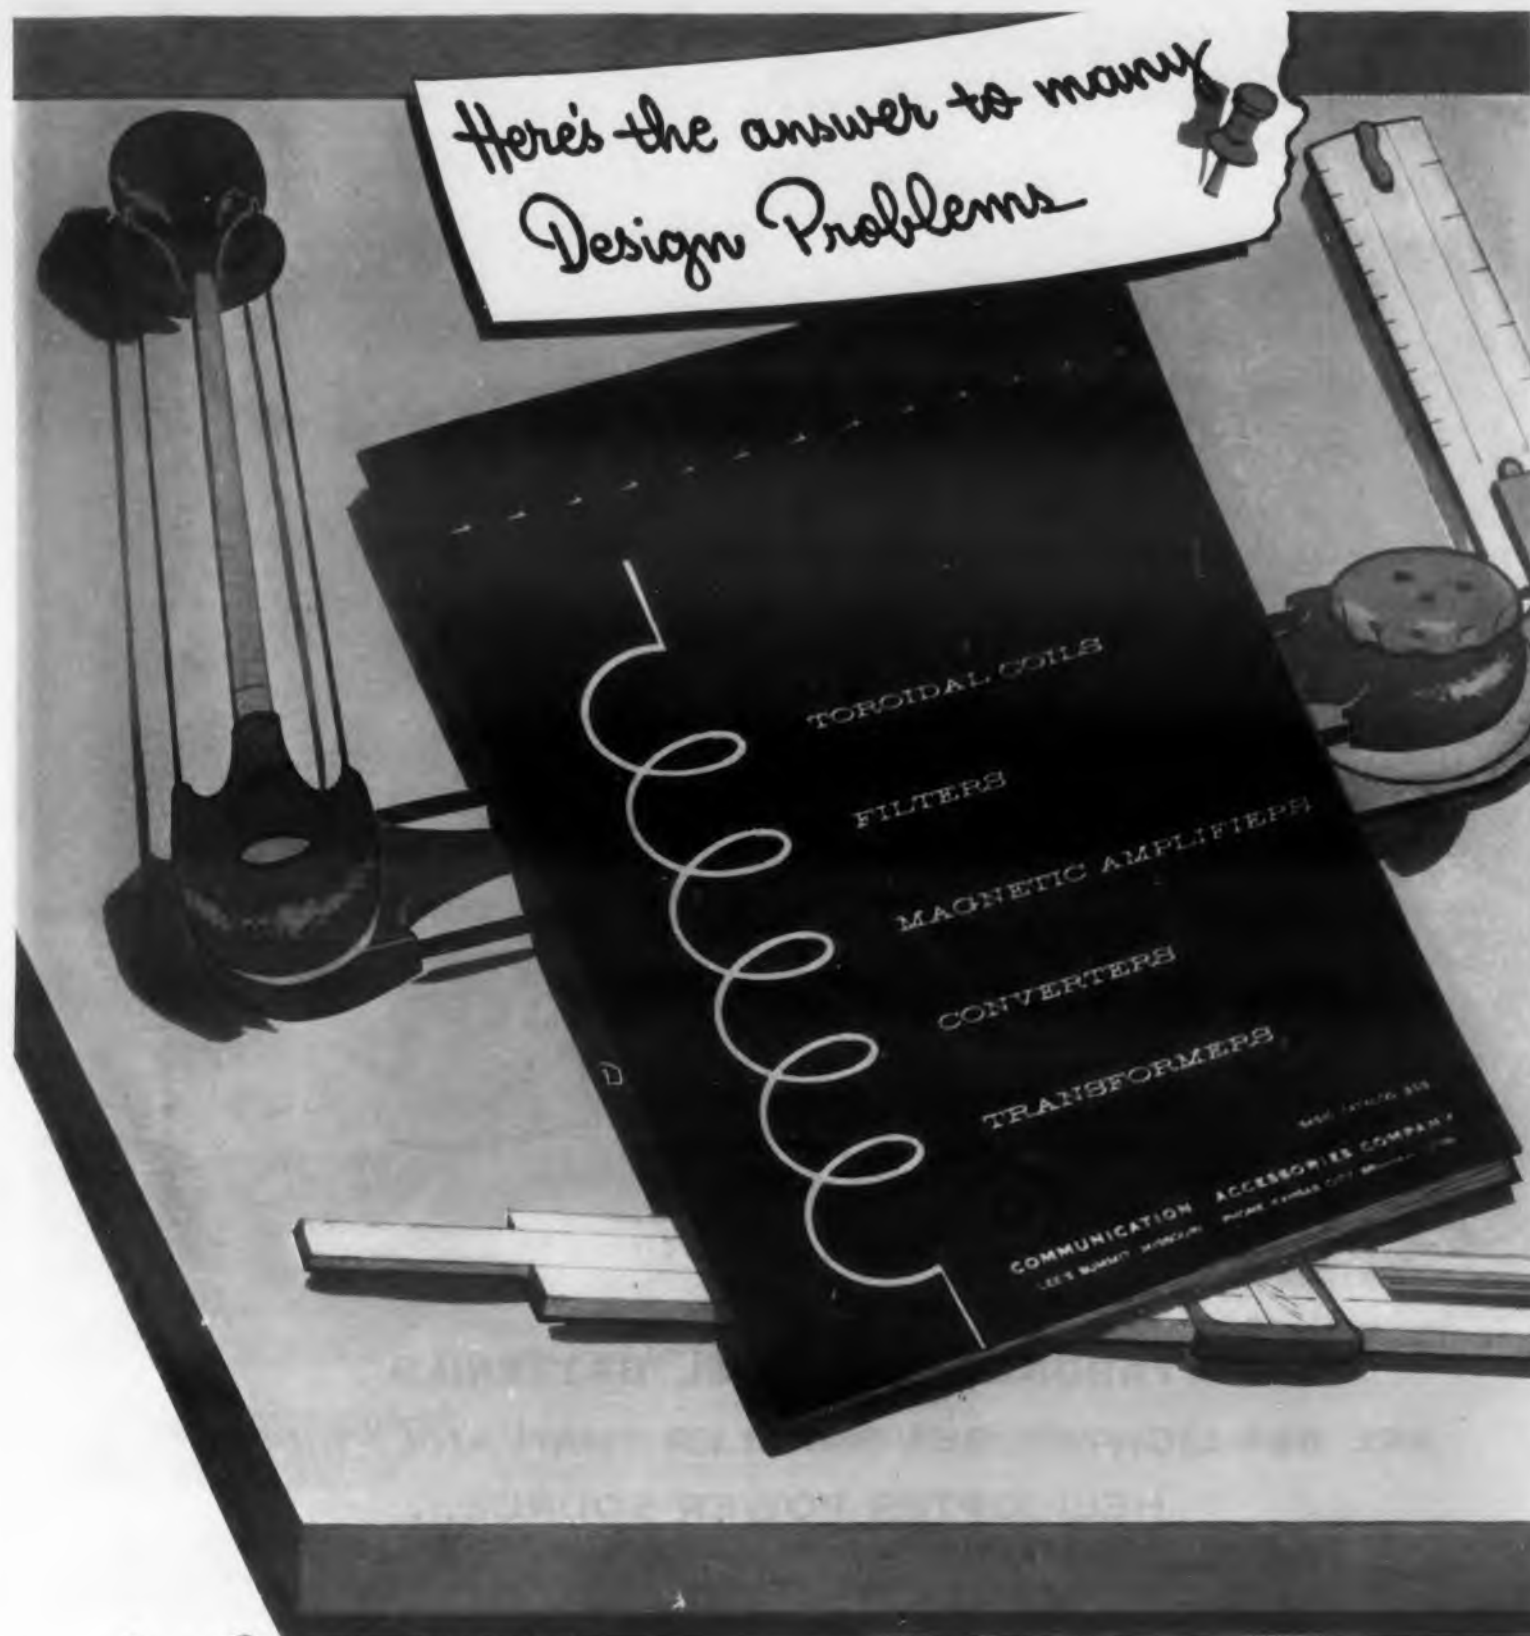 Here's the answer to many
Design Problems
TOROIDAL COILS
FILTERS
MAGNETIC AMPLIFIERS
CONVERTERS
TRANSFORMERS
COMMUNICATION ACCESSORIES COMPANY
LEE'S SUMMIT, MISSOURI PHONE KANSAS CITY